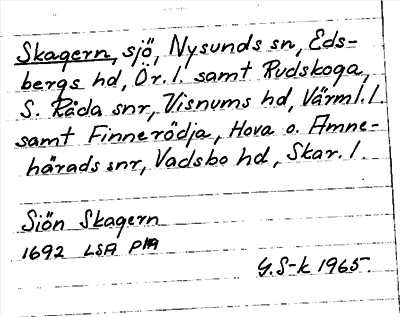 Skagern, sjö, Nysunds sn, Eds-
bergs hd, Ör. l. samt Rudskoga,
S. Råda snr, Visnums hd, Värml. l.
samt Finnerödja, Hova o. Amne-
härads snr, Vadsbo hd, Skar. l.
Siön Skagern
1692 LSA P1A
G.S-k 1965.